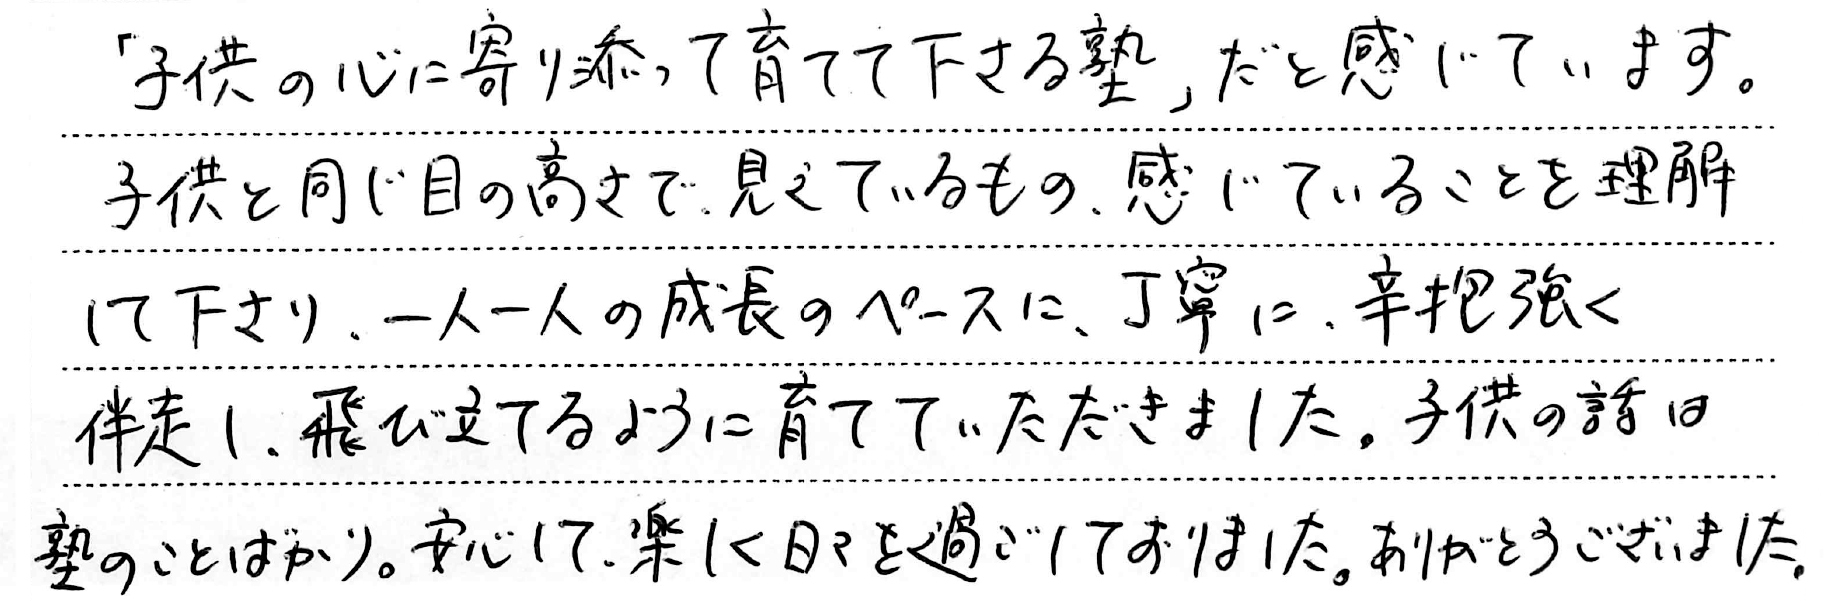 「子供の心に寄り添って育てて下さる塾」だと感じています。
子供と同じ目の高さで、見えているもの、感じていることを理解
して下さり、一人一人の成長のペースに、丁寧に、辛抱強く
伴走し、飛び立てるように育てていただきました。子供の話は
塾のことばかり。安心して、楽しく日々を過ごしておりました。ありがとうございました。